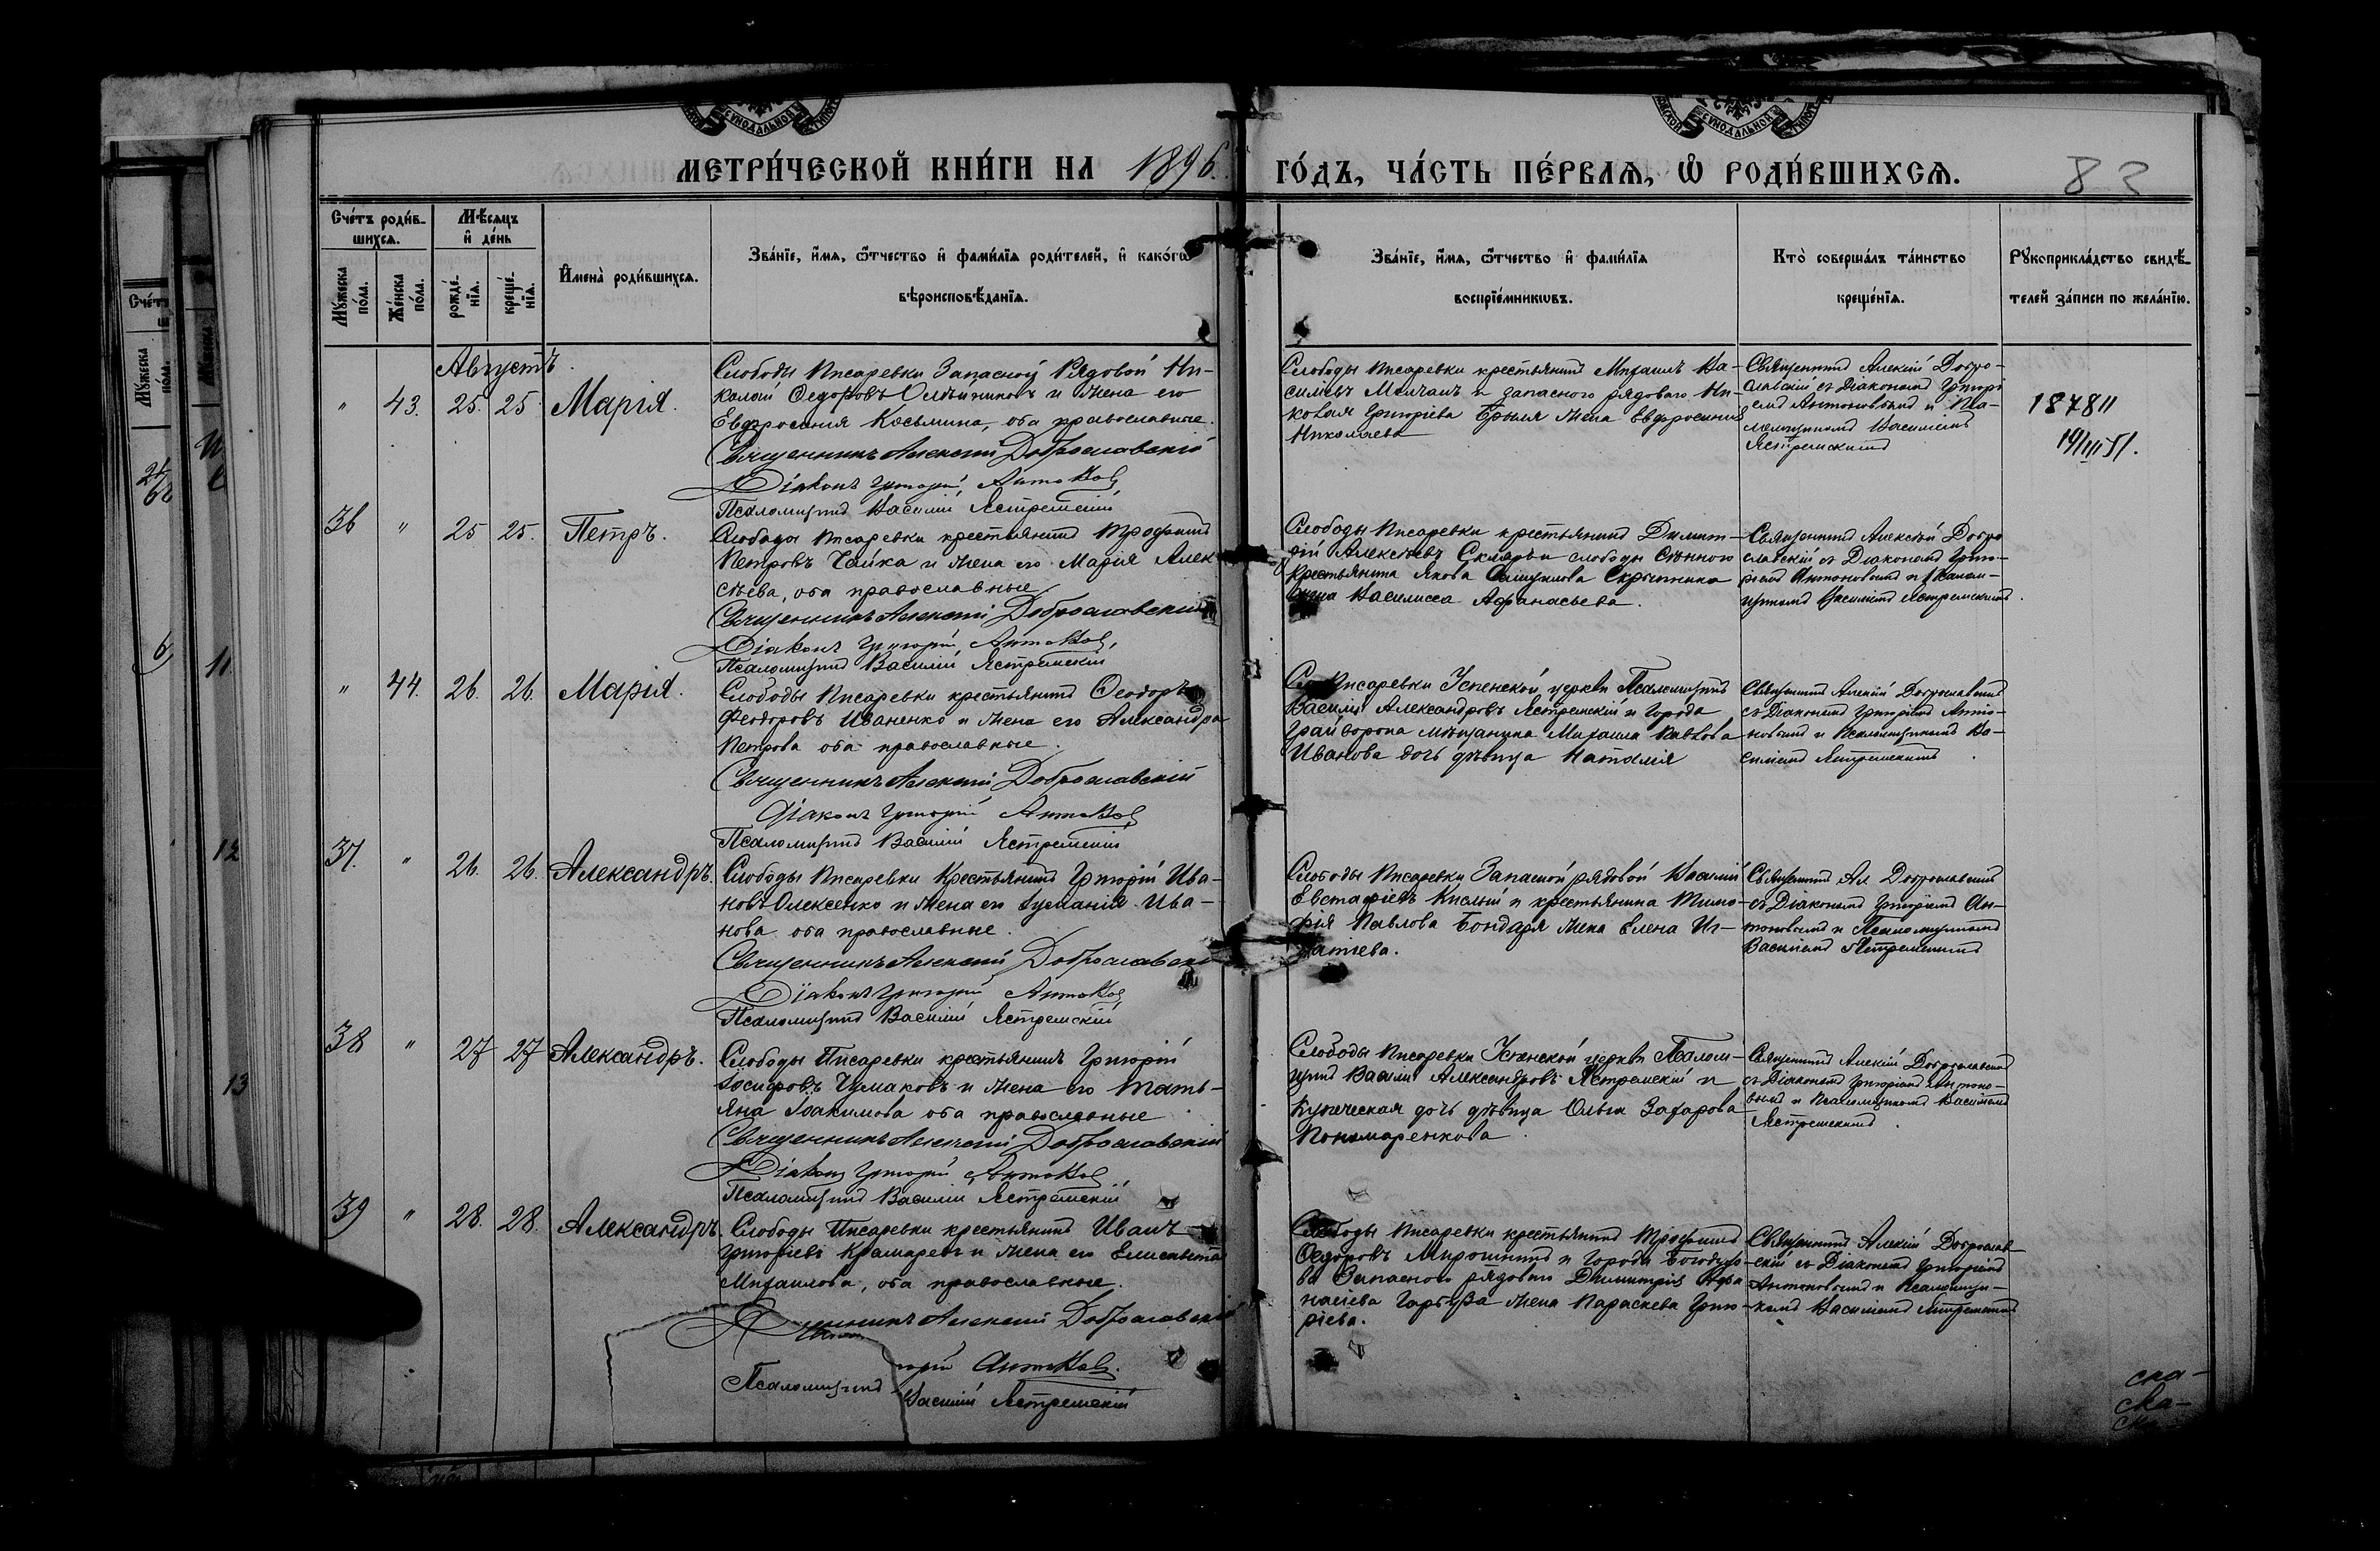 МЕТРИ́ЧЕСКОЙ КНИ́ГИ НА 1896.
ГО́ДЪ, ЧА́СТЬ ПЕ́РВАѦ, Ѡ҆ РОДИ́ВШИХСѦ.
83
Сче́тъ роди́в-
шихсѧ.
Мѣ́сѧцъ
и҆ де́нь
Мꙋ́жеска по́ла.
Же́нска по́ла.
рожде́-
нїѧ.
креще́-
нїѧ.
И҆мена̀ роди́вшихсѧ.
Зва́нїе, и҆́мѧ, ѻ҆́тчество и҆ фами́лїѧ роди́телей, и҆ како́гѡ
вѣроисповѣ́данїѧ.
Зва́нїе, и҆́мѧ, ѻ҆́тчество и҆ фами́лїѧ
воспрїе́мникѡвъ.
Кто̀ соверша́лъ та́инство
креще́нїѧ.
Рꙋкоприкла́дство свидѣ́-
телей за́писи по жела́нїю.
Августъ.
" 43. 25. 25. Марія.
Слободы Писаревки Запасной Рядовой Ни-
колай Ѳедоровъ и жена его
Евфросинія Косьмина, оба православные.
Священникъ Алексій Доброславскій
Діаконъ Григорій
Псаломщикъ Василій Ястремскій
Слободы Писаревки крестьянинъ Михаилъ Ва-
сильевъ и запасного рядового Ни-
Григорьева жена Евфросинія
Николаева
Священникъ Алексій Добро-
славскій съ Діакономъ Григорі
емъ Антоновымъ и Пса-
ломщикомъ Василіемъ
Ястремскимъ
18781
19/III 51.
36 " 25 25. Петръ.
Слободы Писаревки крестьянинъ Трофимъ
Петровъ Чайка и жена его Марія Алек
сѣева, оба православные
Священникъ Алексій Доброславскій
Діаконъ Григорій
Псаломщикъ Василій Ястремскій
Слободы Писаревки крестьянинъ Димит-
рій Алексѣевъ Скляръ и слободы Сѣнного
крестьянина Якова
жена Василисса Афанасьева.
Священникъ Алексѣй Добро
славскій съ Діакономъ Григо-
ріемъ Антоновымъ и Псалом-
щикомъ Василіемъ Ястремскимъ.
" 44. 26. 26. Марія.
Слободы Писаревки крестьянинъ Ѳеодоръ
Феодоровъ Иваненко и жена его Александра
Петрова оба православные.
Священникъ Алексій Доброславскій
Діаконъ Григорій
Псаломщикъ Василій Ястремскій
Писаревки Успенской церкви Псаломщикъ
Василій Александровъ Ястремскій и города
Грайворона мѣщанина Михаила Павлова
Иванова дочь дѣвица Наталія
Священникъ Алексій Доброславскій
съ Діакономъ Григоріемъ Анто-
новымъ и Псаломщикомъ Ва-
силіемъ Ястремскимъ
37. " 26. 26. Александръ.
Слободы Писаревки Крестьянинъ Григорій Ива-
новъ Олексенко и жена его Ива-
нова оба православные.
Священникъ Алексій Доброславскій
Діаконъ Григорій
Псаломщикъ Василій Ястремскій
Слободы Писаревки Запасной рядовой Василій
Евстафіевъ Кислый и крестьянина Тимо-
фія Павлова Бондаря жена Елена Иг-
натіева.
Священникъ Ал Доброславскій
съ Діакономъ Григоріемъ Ан-
тоновымъ и Псаломщикомъ
Василіемъ Ястремскимъ
38 " 27 27 Александръ.
Слободы Писаревки крестьянинъ Григорій
Іосифовъ Чумаковъ и жена его Тать-
яна Іоакимова оба православные
Священникъ Алексій Доброславскій
Діаконъ Григорій
Псаломщикъ Василій Ястремскій
Слободы Писаревки Успенской церкви Псалом-
щикъ Василій Александровъ Ястремскій и
Купеческая дочь дѣвица Ольга Захарова
Пономаренкова.
Священникъ Алексій Доброславскій
съ Діакономъ Григоріемъ Антоно-
вымъ и Псаломщикомъ Василіемъ
Ястремскимъ.
39 " 28. 28. Александръ.
Слободы Писаревки крестьянинъ Иванъ
Григоріевъ Крамаревъ и жена его Елисавета
Михаилова, оба православные.
Алексій Доброславскій
Псаломщикъ Василій Ястремскій
Слободы Писаревки крестьянинъ Трофимъ
Ѳедоровъ Мирошникъ и города Богодухо-
ва Запасного рядового Димитрія Афа
насіева жена Параскева Григо-
ріева.
Священникъ Алексій Дорослав-
скій съ Діакономъ Григоріемъ
Антоновымъ и Псаломщи-
комъ Василіемъ Ястремскимъ